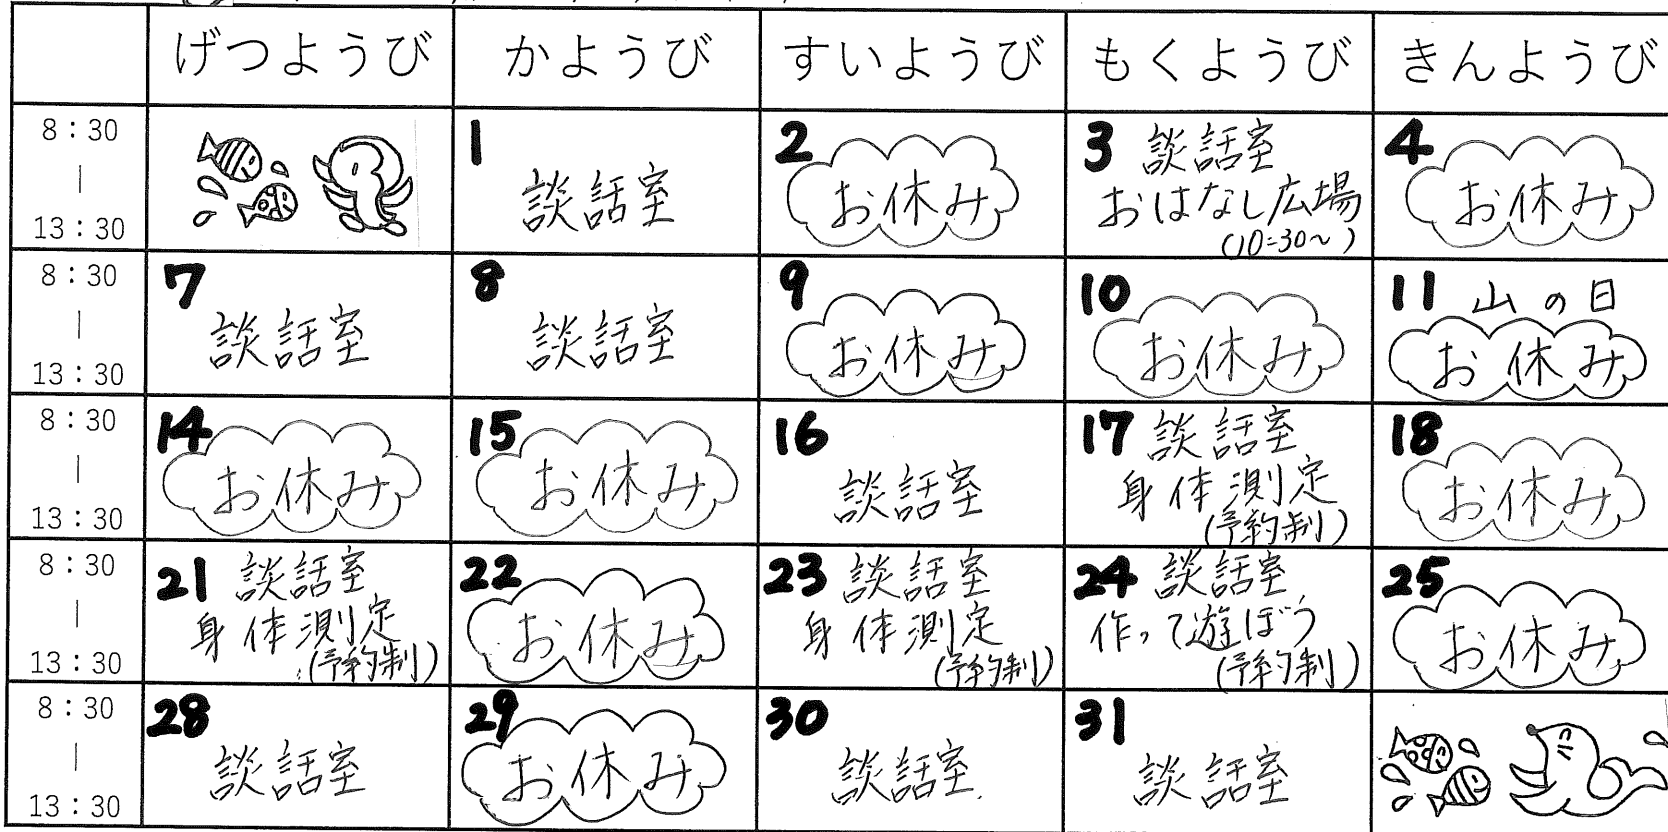 げつようび かようび すいようび もくようび きんようび
8:30
|
13:30
1
談話室
2
お休み
3 談話室
おはなし広場
(10:30~)
4
お休み
8:30
|
13:30
7
談話室
8
談話室
9
お休み
10
お休み
11 山の日
お休み
8:30
|
13:30
14
お休み
15
お休み
16
談話室
17 談話室
身体測定
(予約制)
18
お休み
8:30
|
13:30
21 談話室
身体測定
(予約制)
22
お休み
23 談話室
身体測定
(予約制)
24 談話室
作って遊ぼう
(予約制)
25
お休み
8:30
|
13:30
28
談話室
29
お休み
30
談話室
31
談話室